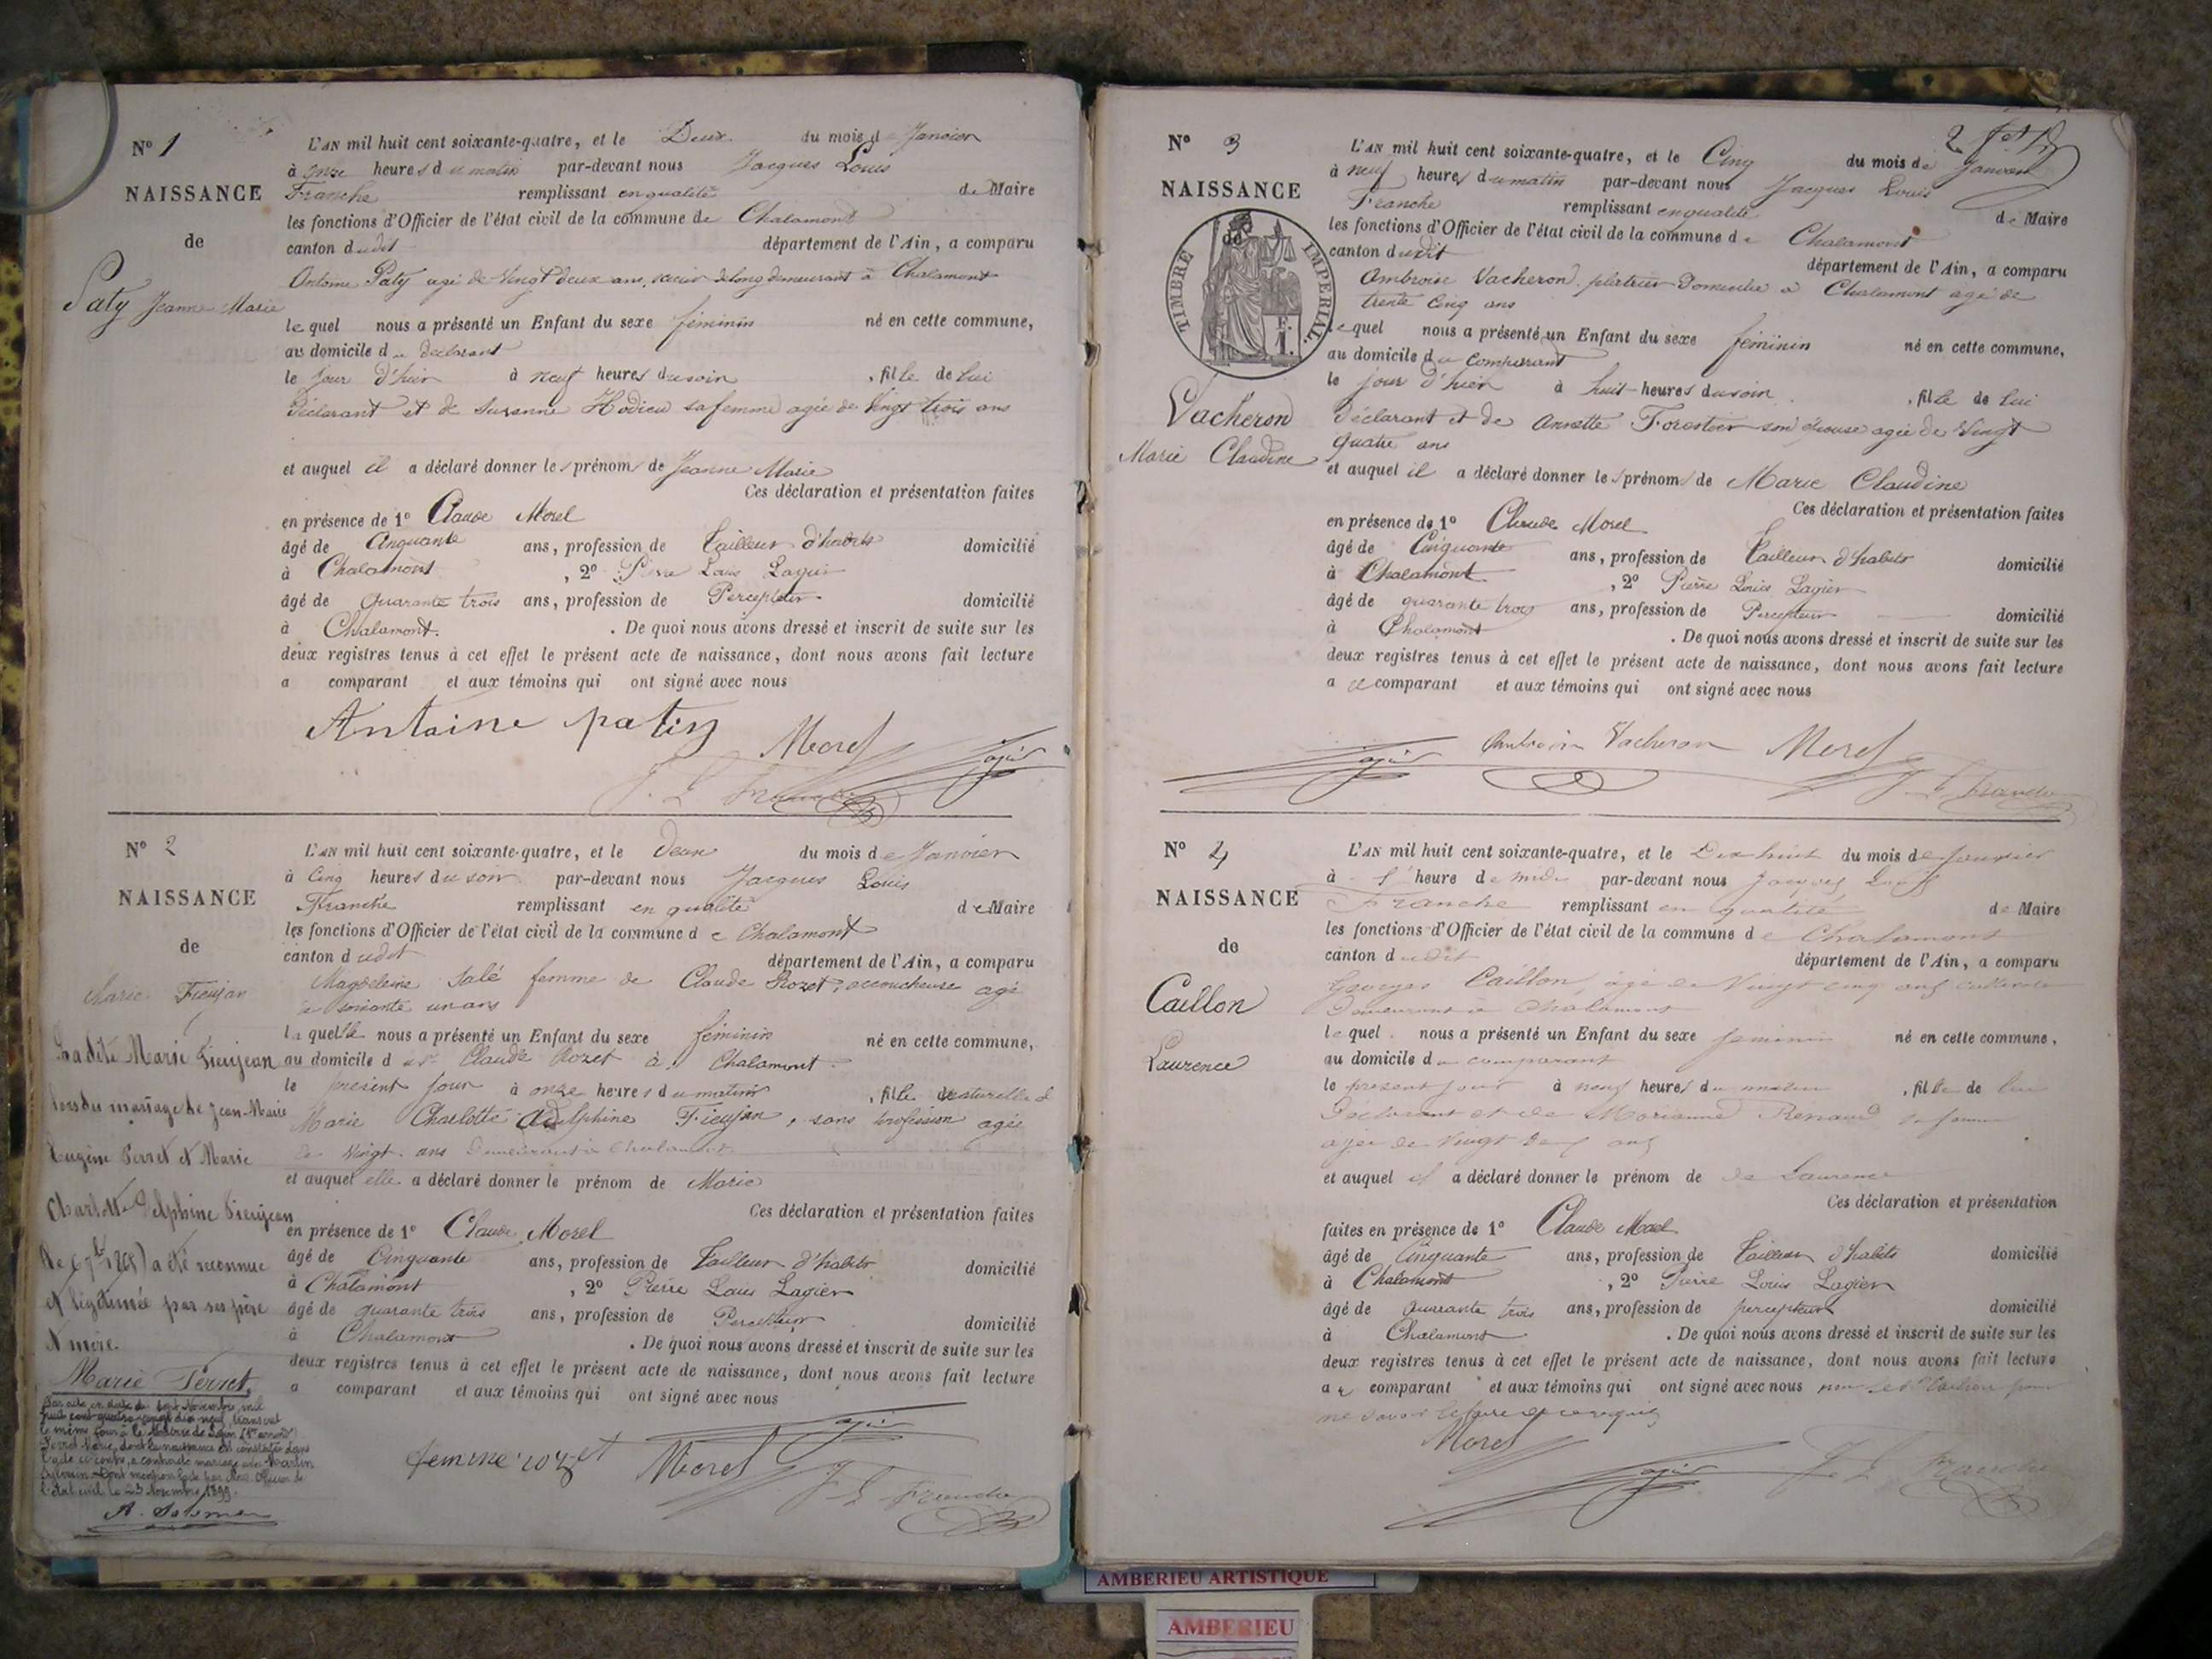 N° 1
NAISSANCE
de
Paty Jeanne Marie
L'AN mil huit cent soixante-quatre, et le Deux du mois d Janvier
à onze heures du matin par-devant nous Jacques Louis
Franche remplissant en qualité de Maire
les fonctions d'Officier de l'état civil de la commune de Chalamont
canton dudit département de l'Ain, a comparu
Antoine Paty agé de vingt deux ans, scieur de long demeurant à Chalamont
lequel nous a présenté un Enfant du sexe féminin né en cette commune,
au domicile du déclarant
le jour d'hier à neuf heures du soir, fille de lui
déclarant et de Suzanne Hodieu sa femme agée de vingt trois ans
et auquel il a déclaré donner les prénoms de Jeanne Marie
Ces déclaration et présentation faites
en présence de 1° Claude Morel
âgé de Cinquante ans, profession de Tailleur d'habits domicilié
à Chalamont, 2° Pierre Louis Lagier
âgé de Quarante trois ans, profession de Percepteur domicilié
à Chalamont. De quoi nous avons dressé et inscrit de suite sur les
deux registres tenus à cet effet le présent acte de naissance, dont nous avons fait lecture
a comparant et aux témoins qui ont signé avec nous
Antoine paty
Morel
Lagier
J. L. Franche
N° 2
NAISSANCE
de
Marie Fieujan
L'AN mil huit cent soixante-quatre, et le deux du mois de Janvier
à Cinq heures du soir par-devant nous Jacques Louis
Franche remplissant en qualité de Maire
les fonctions d'Officier de l'état civil de la commune de Chalamont
canton dudit département de l'Ain, a comparu
Magdeleine Salé femme de Claude Rozet, accoucheuse agé
de soixante un ans
laquelle nous a présenté un Enfant du sexe féminin né en cette commune,
au domicile de Claude Rozet à Chalamont
le present jour à onze heures du matin, fille naturelle d
Marie Charlotte Adelphine Fieujan, sans profession agée
de Vingt ans demeurant à Chalamont
et auquel elle a déclaré donner le prénom de Marie
Ces déclaration et présentation faites
en présence de 1° Claude Morel
âgé de Cinquante ans, profession de Tailleur d'habits domicilié
à Chalamont, 2° Pierre Louis Lagier
âgé de quarante trois ans, profession de Percepteur domicilié
à Chalamont. De quoi nous avons dressé et inscrit de suite sur les
deux registres tenus à cet effet le présent acte de naissance, dont nous avons fait lecture
a comparant et aux témoins qui ont signé avec nous
femme rozet
Morel
Lagier
J L Franche
Ladite Marie Fieujean
lors du mariage de Jean-Marie
Eugène Perret et Marie
Charlotte Delphine Fieujean
a été reconnue
et légitimée par ses père
et mère.
Marie Perret,
Par acte en date du sept Novembre, mil
huit cent quatre vingt dix neuf, transcrit
le même jour à la Mairie de
Perret Marie, dont la naissance est constatée dans
l'acte ci-contre, a contracté mariage avec Martin
Dont mention faite par Nous Officier de
l'état civil le 23 Novembre 1899.
N° 3
NAISSANCE
de
TIMBRE IMPERIAL.
Vacheron
Marie Claudine
L'AN mil huit cent soixante-quatre, et le Cinq du mois de Janvier
à neuf heures du matin par-devant nous Jacques Louis
Franche remplissant en qualité de Maire
les fonctions d'Officier de l'état civil de la commune de Chalamont
canton dudit département de l'Ain, a comparu
Ambroise Vacheron, platrier Domicilié à Chalamont agé de
trente Cinq ans
lequel nous a présenté un Enfant du sexe féminin né en cette commune,
au domicile du comparant
le jour d'hier à huit heures du soir, fille de lui
déclarant et de Annette Forestier son épouse agée de Vingt
quatre ans
et auquel il a déclaré donner les prénoms de Marie Claudine
Ces déclaration et présentation faites
en présence de 1° Claude Morel
âgé de Cinquante ans, profession de Tailleur d'habits domicilié
à Chalamont, 2° Pierre Louis Lagier
âgé de quarante trois ans, profession de Percepteur domicilié
à Chalamont. De quoi nous avons dressé et inscrit de suite sur les
deux registres tenus à cet effet le présent acte de naissance, dont nous avons fait lecture
a ce comparant et aux témoins qui ont signé avec nous
Lagier
Ambroise Vacheron
Morel
J. L. Franche
N° 4
NAISSANCE
de
Caillon
Laurence
L'AN mil huit cent soixante-quatre, et le Dix huit du mois de Janvier
à heure de midi par-devant nous Jacques Louis
Franche remplissant en qualité de Maire
les fonctions d'Officier de l'état civil de la commune de Chalamont
canton dudit département de l'Ain, a comparu
Georges Caillon, agé de Vingt cinq ans cultivateur
Demeurant à Chalamont
lequel nous a présenté un Enfant du sexe féminin né en cette commune,
au domicile du comparant
le present jour à neuf heures du matin, fille de lui
Déclarant et de Marianne Renaud sa femme
agée de Vingt ans
et auquel il a déclaré donner le prénom de de Laurence
Ces déclaration et présentation
faites en présence de 1° Claude Morel
âgé de Cinquante ans, profession de Tailleur d'habits domicilié
à Chalamont, 2° Pierre Louis Lagier
âgé de quarante trois ans, profession de percepteur domicilié
à Chalamont. De quoi nous avons dressé et inscrit de suite sur les
deux registres tenus à cet effet le présent acte de naissance, dont nous avons fait lecture
a comparant et aux témoins qui ont signé avec nous non le Caillon pour
ne savoir le faire
Morel
Lagier
J. L. Franche
AMBERIEU ARTISTIQUE
AMBERIEU